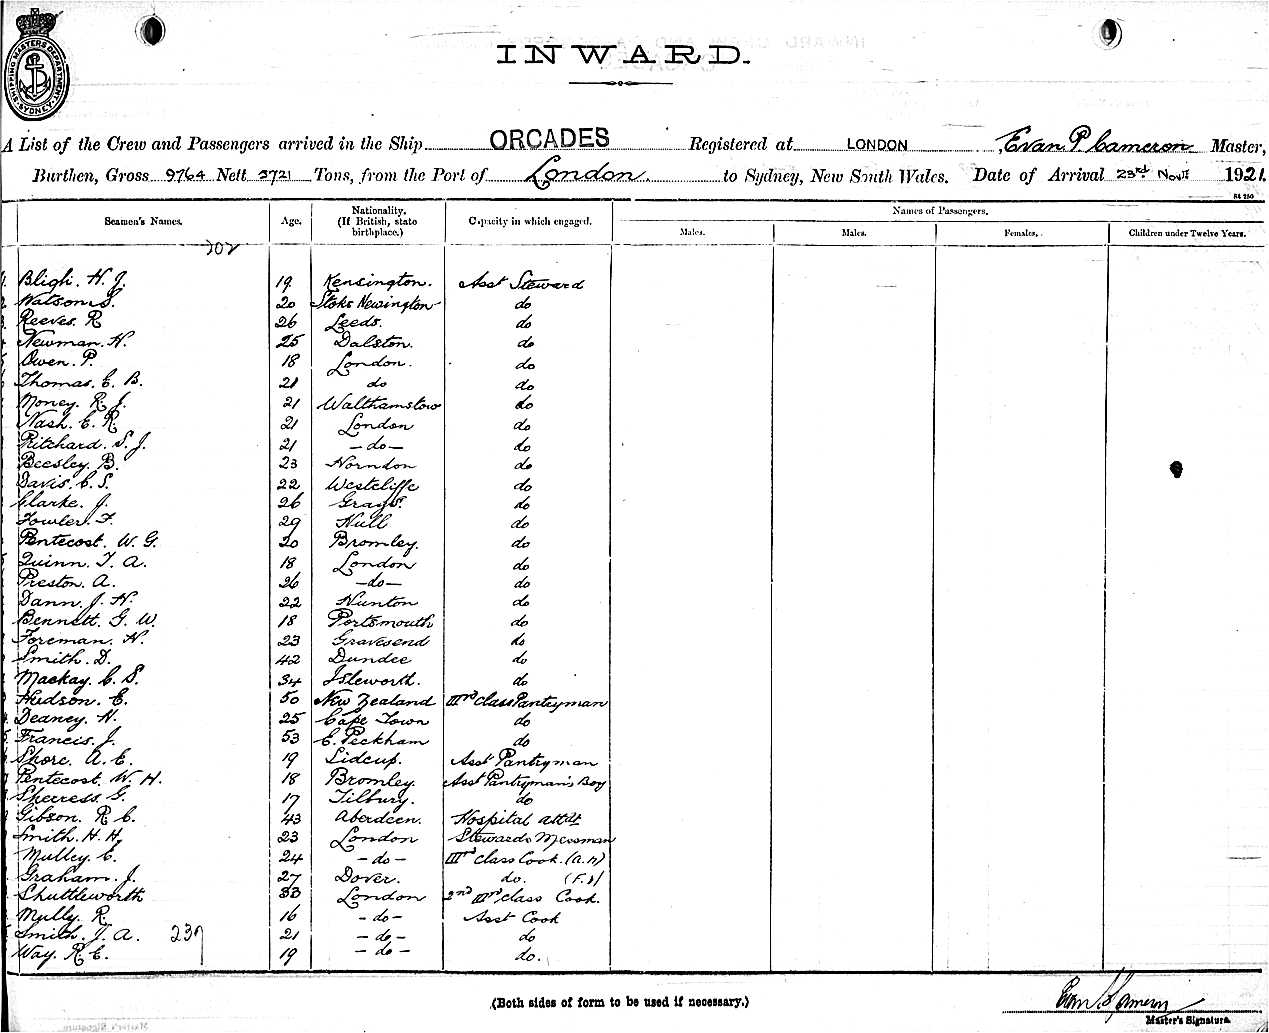 SHIPPING MASTERS DEPARTMENT SYDNEY
INWARD.
A List of the Crew and Passengers arrived in the Ship ORCADES Registered at LONDON Evan P. Cameron Master,
Burthen, Gross 9764 Nett 3721 Tons, from the Port of London. to Sydney, New South Wales. Date of Arrival 23rd Novr 1921.
St 250
Seamen's Names. Age. Nationality. (If British, state birthplace.) Capacity in which engaged. Names of Passengers.
Males. Males. Females. Children under Twelve Years.
202
Bligh. H. J. 19 Kensington. Asst Steward
Watson. S. 20 Stoke Newington do
Reeves. R 26 Leeds. do
Newman. H. 25 Dalston. do
Owen. P. 18 London. do
Thomas. E. B. 21 do do
Money. R. J. 21 Walthamstow do
Nash. E. R. 21 London do
Pritchard. S. J. 21 -do- do
Beesley. B. 23 Norndon do
Davis. C. S. 22 Westcliffe do
Clarke. J. 26 Grays. do
Fowler. F. 29 Hull do
Pentecost. W. G. 20 Bromley. do
Quinn. T. A. 18 London do
Preston. A. 26 -do- do
Dann. J. H. 22 Hunton do
Bennett. G. W. 18 Portsmouth do
Foreman. H. 23 Gravesend do
Smith. D. 42 Dundee do
Mackay. C. S. 34 Isleworth. do
Hudson. E. 50 New Zealand IIIrd class Pantryman
Deaney. H. 25 Cape Town do
Francis. J. 53 E. Peckham do
Shore. A. E. 19 Sidcup. Asst Pantryman
Pentecost. W. H. 18 Bromley. Asst Pantryman's Boy
G. 17 Tilbury. do
Gibson. R. C. 43 Aberdeen. Hospital attdt
Smith. H. H. 23 London Stewards Messman
Mulley. E. 24 -do- IIIrd class Cook. (a.n)
Graham. J. 27 Dover. do.
Shuttleworth 33 London 2nd IIIrd class Cook.
Mully. R. 16 -do- Asst Cook
Smith. J. A. 237 21 -do- do
Way. R. E. 19 -do- do.
(Both sides of form to be used if necessary.)
Evan P. Cameron
Master's Signature.